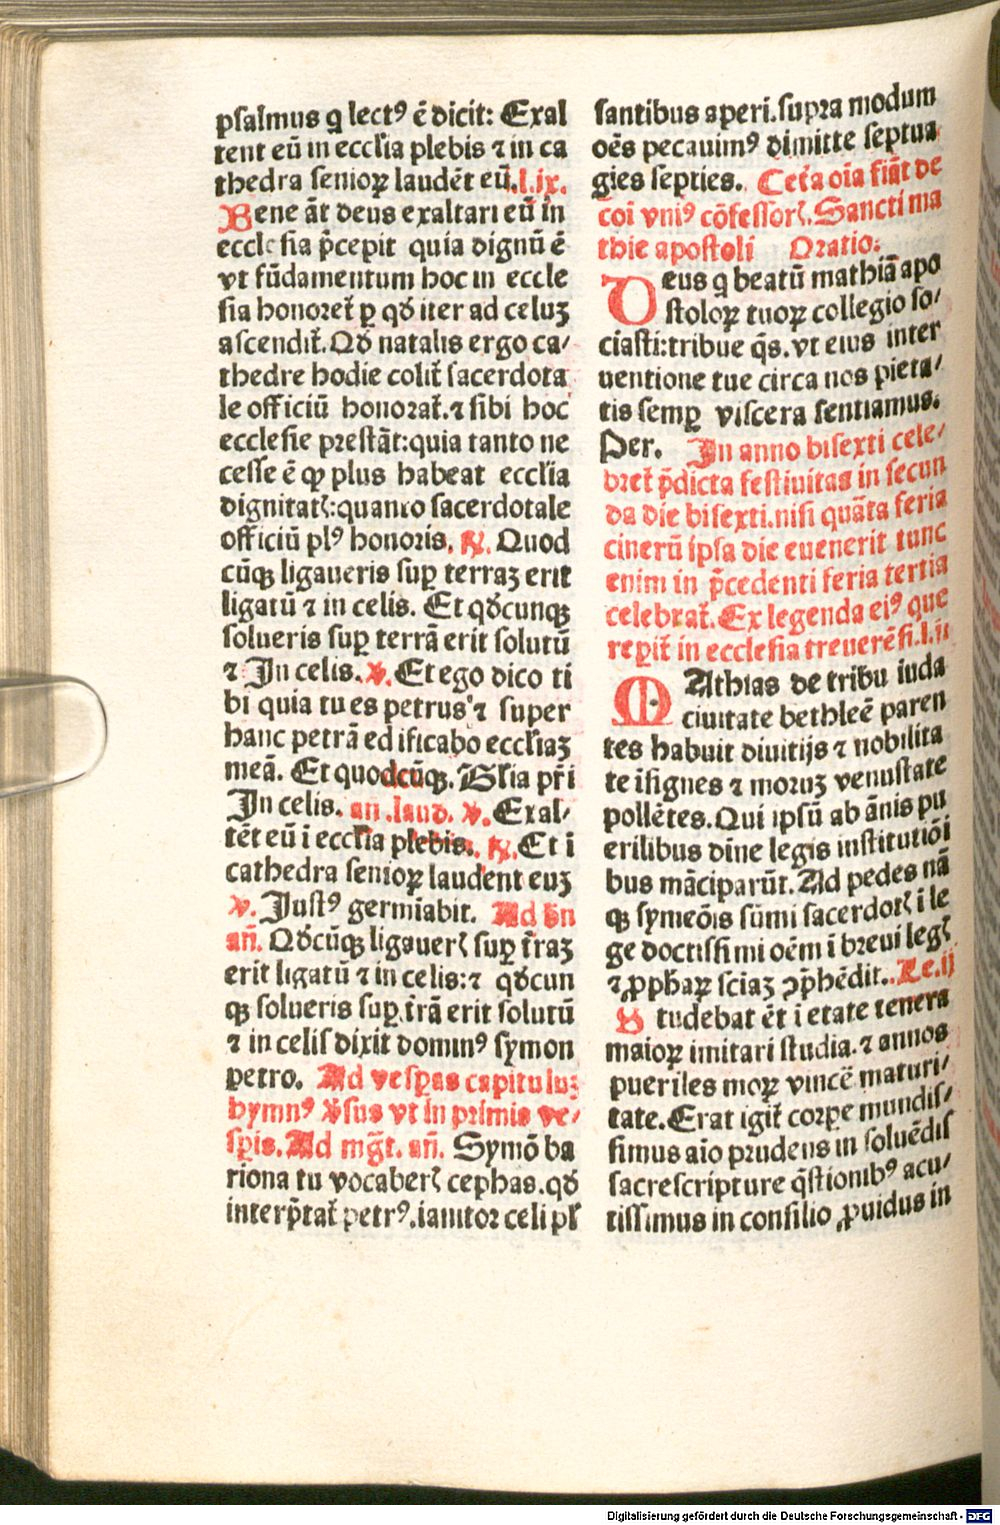 psalmus q̄ lectꝰ ē dicit: Exal
tent eū in ecclīa plebis ⁊ in ca
thedra senioꝝ laudēt eū. l.ix.
Bene āt deus exaltari eū in
ecclesia p̄cepit quia dignū ē
vt fūdamentum hoc in eccle
sia honoret᷑ ꝑ qđ iter ad celuꝫ
ascendit᷑. Qđ natalis ergo ca⸗
thedre hodie colit᷑ sacerdota
le officiū honorat᷑. ⁊ sibi hoc
ecclesie prestāt: quia tanto ne
cesse ē ꝙ plus habeat ecclīa
dignitatꝭ: quanto sacerdotale
officiū plꝰ honoris. ℟. Quod
cūqꝫ ligaueris suꝑ terraꝫ erit
ligatū ⁊ in celis. Et qđcunqꝫ
solueris suꝑ terrā erit solutū
⁊ In celis. ℣. Et ego dico ti
bi quia tu es petrus ⁊ super
hanc petrā edificabo eccliaꝫ
meā. Et quodcūqꝫ. Glīa pr̄i
In celis. an̄. laud. ℣. Exal⸗
tēt eū i ecclīa plebis. ℟. Et ī
cathedra senioꝝ laudent euꝫ
℣. Justꝰ germīabit. Ad bn̄
an̄. Qđcūqꝫ ligauerꝭ suꝑ t̄raꝫ
erit ligatū ⁊ in celis: ⁊ qđcun
qꝫ solueris suꝑ t̄rā erit solutū
⁊ in celis dixit dominꝰ symon
petro. Ad vesꝑas capituluꝫ
hymnꝰ v̄sus vt in primis ve⸗
sꝑis. Ad mḡt. an̄. Symō ba
riona tu vocaberꝭ cephas. qđ
interp̄tat᷑ petrꝰ. ianitor celi pl̄
santibus aperi. supra modum
oēs pecauimꝰ dimitte septua
gies septies. Cet̄a oīa fiāt de
coī vniꝰ cōfessorꝭ. Sancti ma
thie apostoli Oratio:
Deus q̄ beatū mathiā apo
stoloꝝ tuoꝝ collegio so⸗
ciasti: tribue q̄s. vt eius inter
uentione tue circa nos pieta⸗
tis semꝑ viscera sentiamus.
Per. In anno bisexti cele⸗
bret᷑ p̄dicta festiuitas in secun
da die bisexti. nisi quāta feria
cinerū ipsa die euenerit tunc
enim in p̄cedenti feria tertia
celebrat᷑. Ex legenda eiꝰ que
reꝑit᷑ in ecclesia treuerēsi. l.ii
MAthias de tribu iuda
ciuitate bethleē paren
tes habuit diuitijs ⁊ nobilita
te īsignes ⁊ moruꝫ venustate
pollētes. Qui ipsū ab ānis pu
erilibus dīne legis institutiōi
bus mācipaɼūt. Ad pedes nā
qꝫ symeōis sūmi sacerdotꝭ ī le
ge doctissimi oēm ī breui legꝭ
⁊ ꝓphaꝝ sciaꝫ ɔp̄hēdit. Le.ij
Studebat ēt ī etate tenera
maioꝝ imitari studia. ⁊ annos
pueriles moꝝ vincē maturi⸗
tate. Erat igit᷑ corpe mundis⸗
simus aīo prudens in soluēdis
sacre scripture q̄stionibꝰ acu⸗
tissimus in consilio ꝓuidus in
Digitalisierung gefördert durch die Deutsche Forschungsgemeinschaft - DFG